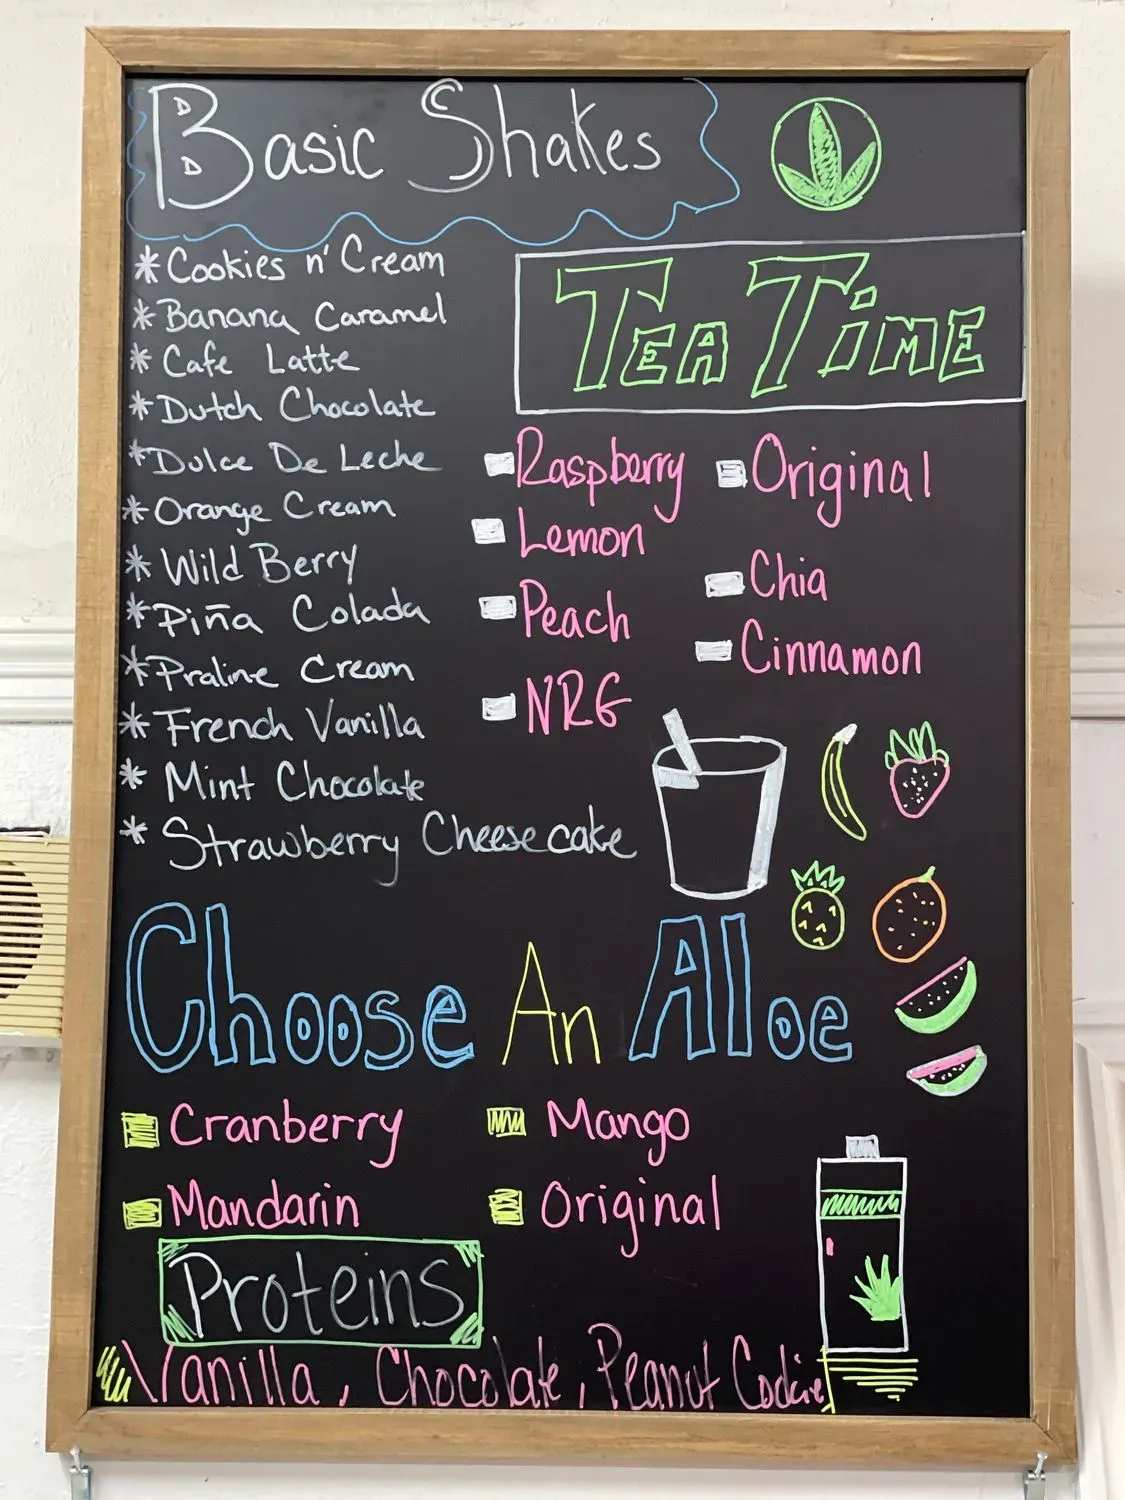 Basic Shakes
*Cookies n' Cream
*Banana Caramel
*Cafe Latte
*Dutch Chocolate
*Dulce De Leche
*Orange Cream
*Wild Berry
*Piña Colada
*Praline Cream
*French Vanilla
*Mint Chocolate
*Strawberry Cheesecake
TEA TiME
Raspberry
Lemon
Peach
NRG
Original
Chia
Cinnamon
Choose An Aloe
Cranberry
Mandarin
Mango
Original
Proteins
Vanilla, Chocolate, Peanut Cookie